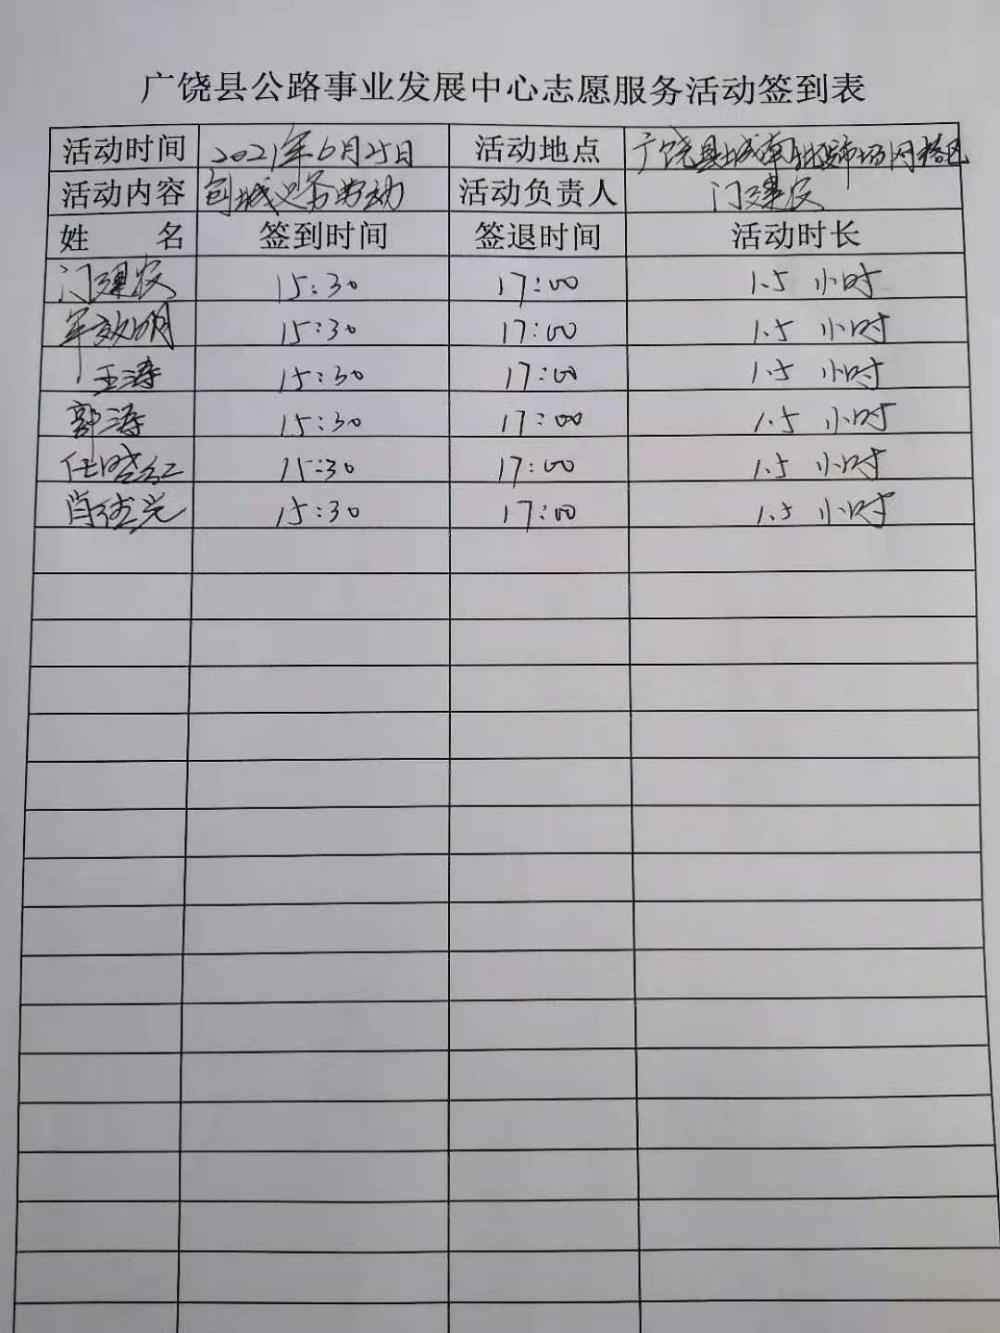 广饶县公路事业发展中心志愿服务活动签到表
活动时间 2021年6月25日 活动地点 广饶县城南 市场网格区
活动内容 创城义务劳动 活动负责人 门建农
姓 名 签到时间 签退时间 活动时长
门建农 15:30 17:00 1.5 小时
效明 15:30 17:00 1.5 小时
王涛 15:30 17:00 1.5 小时
郭涛 15:30 17:00 1.5 小时
任晓红 15:30 17:00 1.5 小时
肖 15:30 17:00 1.5 小时